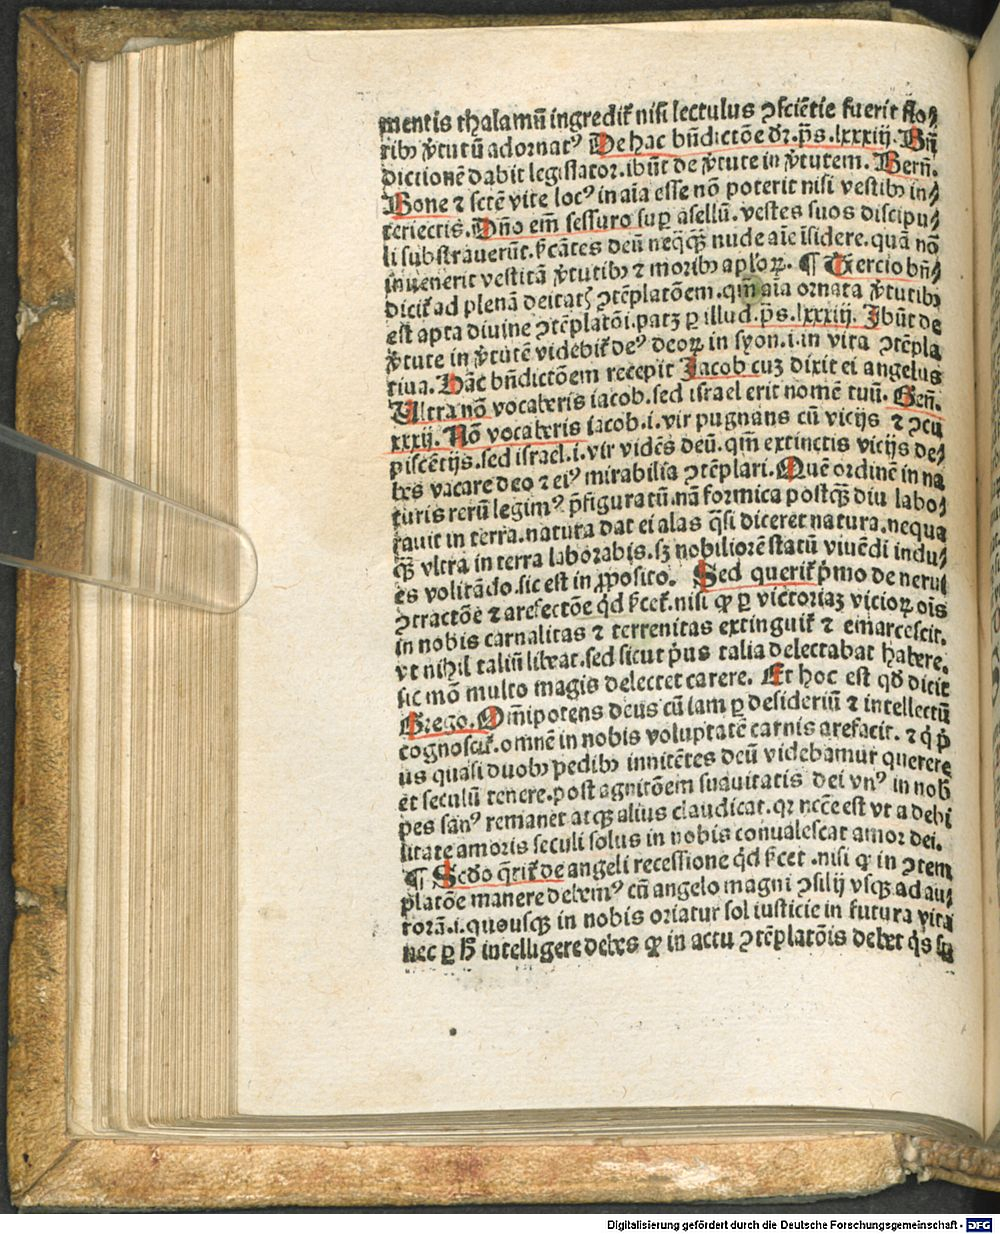 mentis thalamū ingredit̄ nisi lectulus ↄsciētie fuerit flo⸗
ribꝫ v̄tutū adornatꝰ De hac bn̄dictōe dr̄. ps̄. lxxxiij. Bn̄
dictionē dabit legislator. ibūt de v̄tute in v̄tutem. Bern̄.
Bone ⁊ sctē vite locꝰ in aīa esse nō poterit nisi vestibꝫ in⸗
teriectis. Dn̄o em̄ sessuro suꝑ asellū. vestes suos discipu⸗
li substrauerūt. nudeaīe īsidere. quā nō
inuenerit vestitā v̄tutibꝫ ⁊ moribꝫ aplōꝝ. ¶ Tercio bn̄⸗
dicit̄ ad plenā deitatꝭ ↄtēplatōem. qm̄ aīa ornata v̄tutibꝫ
est apta diuine ↄtēplatōi. patꝫ ꝑ illud. ps̄. lxxxiij. Ibūt de
v̄tute in v̄tutē videbit̄ deꝰ deoꝝ in syon. i. in vita ↄtēpla
tiua. Hāc bn̄dictōem recepit Jacob cuꝫ dixit ei angelus
Ultra nō vocaberis iacob. sed israel erit nomē tuū. Gen̄.
xxxij. Nō vocaberis iacob. i. vir pugnans cū vicijs ⁊ ↄcu
piscētijs. sed israel. i. vir vidēs deū. qm̄ extinctis vicijs de⸗
bes vacare deo ⁊ eiꝰ mirabilia ↄtēplari. Quē ordinē in na
turis rerū legimꝰ p̄figuratū. nā formica postqꝫ̄ diu labo⸗
rauit in terra. natura dat ei alas q̄si diceret natura. nequa
qꝫ̄ vltra in terra laborabis. sꝫ nobiliorē statū viuēdi indu⸗
es volitādo. sic est in ꝓposito. Sed querit̄ p̄mo de nerui
ↄtractōe ⁊ arefectōe qd̄ nisi ꝙ ꝑ victoriaꝫ vicioꝝ oīs
in nobis carnalitas ⁊ terrenitas extinguit̄ ⁊ emarcescit.
vt nihil taliū libeat. sed sicut p̄us talia delectabat habere.
sic mō multo magis delectet carere. Et hoc est qd̄ dicit
Grego. Om̄ipotens deus cū iam ꝑ desideriū ⁊ intellectū
cognoscit̄. omnē in nobis voluptatē carnis arefacit. ⁊ q̄ p̄
us quasi duobꝫ pedibꝫ innitētes deū videbamur querere
et seculū tenere. post agnitōem suauitatis dei vnꝰ in nob̄
pes sanꝰ remanet atqꝫ alius claudicat. qꝛ nccē est vt a debi
litate amoris seculi solus in nobis conualescat amor dei.
¶ Scd̄o q̄rit̄ de angeli recessione qd̄ nisi ꝙ in ↄtem
platōe manere debemꝰ cū angelo magni ↄsilij vsqꝫ ad au⸗
rorā. i. quousqꝫ in nobis oriatur sol iusticie in futura vita
nec ꝑ h̄ intelligere debes ꝙ in actu ↄtēplatōis debet q̄s
Digitalisierung gefördert durch die Deutsche Forschungsgemeinschaft - DFG